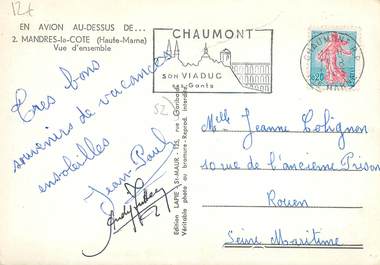 12f
EN AVION AU-DESSUS DE...
2. MANDRES-la-COTE (Haute-Marne)
Vue d'ensemble
CHAUMONT
SON VIADUC
Gants
CHAUMONT
0,20
52
Très bons
souvenirs de vacances
ensoleillées
Jean-Paul
Edition LAPIE, St-MAUR - 125, rue Garibaldi
Véritable photo au bromure - Reprod. interdite
Mlle Jeanne Colignon
10 rue de l'ancienne Prison
Rouen
Seine Maritime